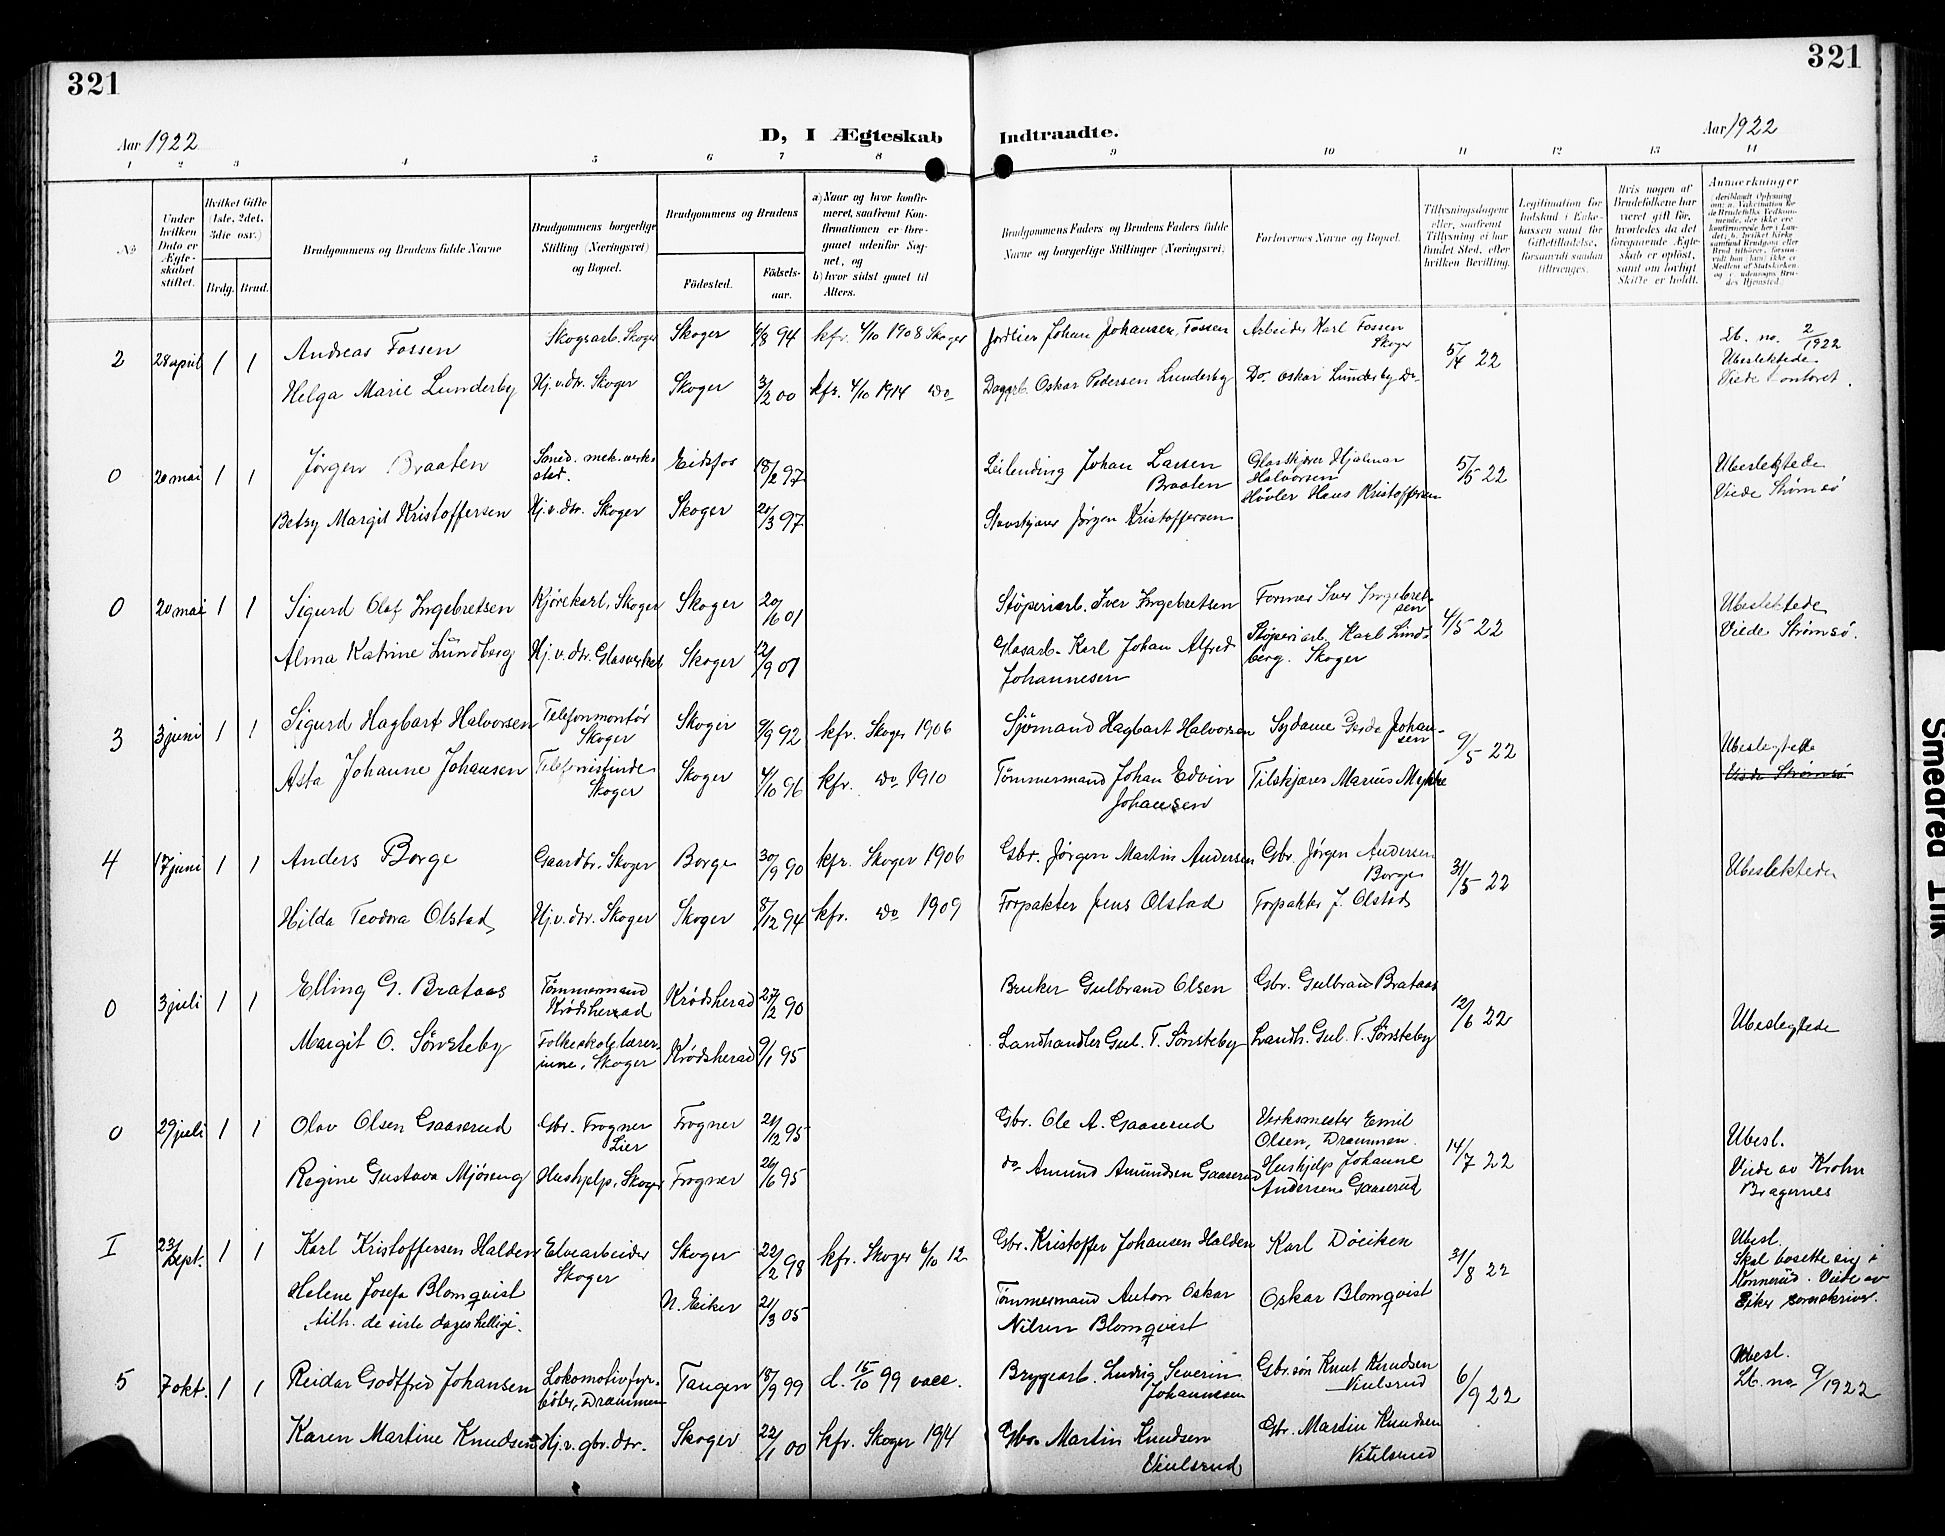 321
321
Aar 1922
D, I Ægteskab Indtraadte.
Aar 1922
1 2 3 4 5 6 7 8 9 10 11 12 13 14
No
Under hvilken Dato er Ægteskabet stiftet.
Hvilket Gifte (1ste, 2det, 3die osv.)
Brdg. Brud.
Brudgommens og Brudens fulde Navne
Brudgommens borgerlige Stilling (Næringsvei) og Bopæl.
Brudgommens og Brudens
Födested.
Födselsaar.
a) Naar og hvor konfirmeret, saafremt Konfirmationen er foregaaet udenfor Sognet, og
b) hvor sidst gaaet til Alters.
Brudgommens Faders og Brudens Faders fulde Navne og borgerlige Stillinger (Næringsvei)
Forlovernes Navne og Bopæl.
Tillysningsdagene eller, saafremt Tillysning ei har fundet Sted, efter hvilken Bevilling.
Legitimation for Indskud i Enkekassen samt for Giftetilladelse, forsaavidt saadan tiltrænges.
Hvis nogen af Brudefolkene har været gift før, hvorledes da det foregaaende Ægteskab er opløst, samt om lovligt Skifte er holdt.
Anmærkninger
2 28 april 1 1 Andreas Fossen Skogsarb. Skoger Skoger 6/8 94 kfr. 4/10 1908 Skoger Jordeier Johan Johansen, Fossen Arbeider Karl Fossen Skoger 5/4 22 Lb. no. 2/1922 Ubeslektede Viede i kontoret.
Helga Marie Lunderby Hj.v.dtr. Skoger Skoger 3/2 00 kfr. 4/10 1914 do Dagarb. Oskar Pedersen Lunderby Do. Oskar Lunderby do.
0 20 mai 1 1 Jørgen Braaten Smed. mek. verksted. Eidsfos 18/2 97 Leilending Johan Larsen Braaten Glasskjærer Hjalmar Halvorsen 5/5 22 Ubeslektede Viede Strømsø
Betsy Margit Kristoffersen Hj.v.dtr. Skoger Skoger 20/3 97 Stavskjærer Jørgen Kristoffersen Høvler Hans Kristoffersen
0 20 mai 1 1 Sigurd Olaf Ingebretsen Kjørekarl, Skoger Skoger 20/10 01 Støperiarb. Iver Ingebretsen Former Iver Ingebretsen 4/5 22 Ubeslektede Viede Strømsø.
Alma Katrine Lundberg Hj.v.dtr. Glasverket Skoger 12/9 01 Glasarb. Karl Johan Alfred Johannesen Støperiarb. Karl Lundberg. Skoger
3 3 juni 1 1 Sigurd Hagbart Halvorsen Telefonmontør Skoger Skoger 9/9 92 kfr. Skoger 1906 Sjømand Hagbart Halvorsen Sydame Gerda Johansen 9/5 22 Ubeslegtede Viede Strømsø
Asta Johanne Johansen Telefonistinde Skoger Skoger 4/10 96 kfr. do 1910 Tømmermand Johan Edvin Johansen Tilskjærer Marius Myhre
4 17 juni 1 1 Anders Borge Gaardbr. Skoger Borge 30/9 90 kfr. Skoger 1906 Gbr. Jørgen Martin Andersen Gbr. Jørgen Andersen Borge 31/5 22 Ubeslektede
Hilda Teodora Olstad Hj.v.dtr. Skoger Skoger 8/12 94 kfr. do 1909 Forpakter Jens Olstad Forpakter J. Olstad
0 3 juli 1 1 Elling G. Brataas Tømmermand Krødsherad Krødsherad 27/2 90 Bruker Gulbrand Olsen Gbr. Gulbrand Brataas 12/6 22 Ubeslegtede
Margit O. Sønsteby Folkeskolelærerinne, Skoger Krødsherad 9/1 95 Landhandler Gul. T. Sønsteby Landh. Gul. T. Sønsteby
0 29 juli 1 1 Olav Olsen Gaaserud Gbr. Frogner Lier Frogner 20/12 95 Gbr. Ole A. Gaaserud Verksmester Emil Olsen, Drammen. 14/7 22 Ubesl. Viede av Krohn Bragernes
Regine Gustava Mjøseng Hushjelp, Skoger Frogner 26/6 95 do Amund Amundsen Gaaserud Hushjelp Johanne Andersen Gaaserud
I 23/sept. 1 1 Karl Kristoffersen Halden Elvearbeider Skoger Skoger 22/12 98 kfr. Skoger 6/10 12 Gbr. Kristoffer Johansen Halden Karl Döviken 31/8 22 Ubesl. Skal bosette sig i Konnerud. Viede av Eiker sorenskriver.
Helene Josefa Blomqvist tilh. de siste dages hellige. N. Eiker 21/3 05 Tømmermand Anton Oskar Nilsen Blomqvist Oskar Blomqvist
5 7 okt. 1 1 Reidar Godtfred Johansen Lokomotivfyrbøter, Drammen Tangen 18/9 99 d. 15/10 99 vacc. Bryggearb. Ludvig Severin Johannesen Gbr.søn Knut Knudsen 6/9 22 Ubesl. Lb. no 9/1922
Karen Martine Knudsen Hj.v. gbr. dtr. Skoger 22/1 00 kfr. Skoger 1914 Gbr. Martin Knudsen Gbr. Martin Knudsen
Smeared Ink